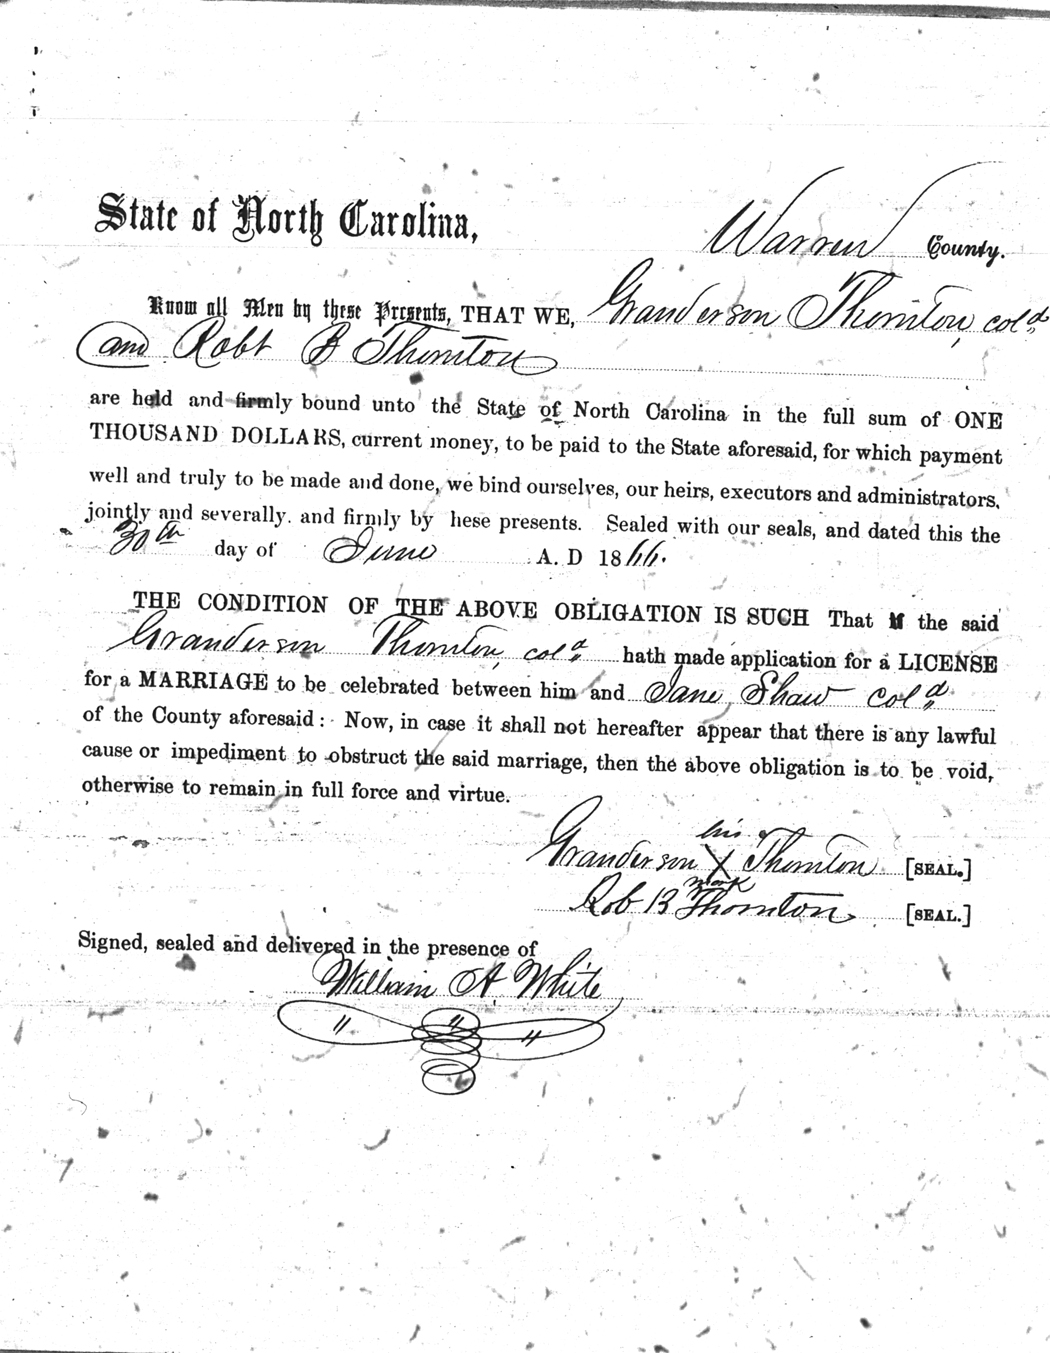 State of North Carolina, Warren County.
Know all Men by these Presents, THAT WE, Granderson Thornton, cold
and Robt B Thornton
are held and firmly bound unto the State of North Carolina in the full sum of ONE
THOUSAND DOLLARS, current money, to be paid to the State aforesaid, for which payment
well and truly to be made and done, we bind ourselves, our heirs, executors and administrators,
jointly and severally. and firmly by hese presents. Sealed with our seals, and dated this the
30th day of June A. D 1866.
THE CONDITION OF THE ABOVE OBLIGATION IS SUCH That if the said
Granderson Thornton, cold hath made application for a LICENSE
for a MARRIAGE to be celebrated between him and Jane Shaw cold
of the County aforesaid: Now, in case it shall not hereafter appear that there is any lawful
cause or impediment to obstruct the said marriage, then the above obligation is to be void,
otherwise to remain in full force and virtue.
his
Granderson X Thornton [SEAL.]
mark
Rob B Thornton [SEAL.]
Signed, sealed and delivered in the presence of
William A White